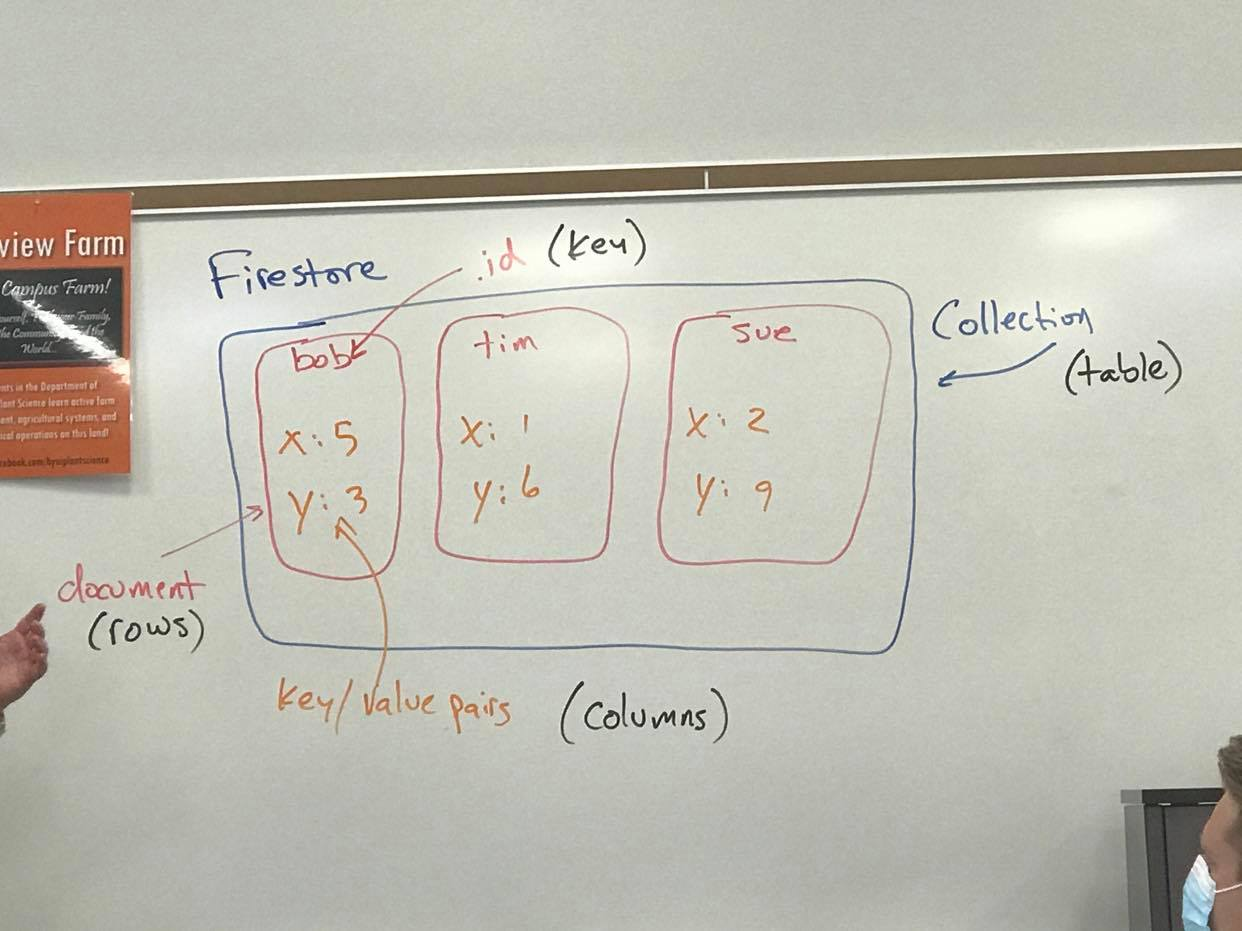 view Farm
Campus Farm!
Family,
the
World...
in the Department of
Science learn active farm
agricultural systems, and
operations on this land!
Firestore
.id (key)
Collection
(table)
bob
x: 5
y: 3
tim
x: 1
y: 6
sue
x: 2
y: 9
document
(rows)
key/value pairs (columns)